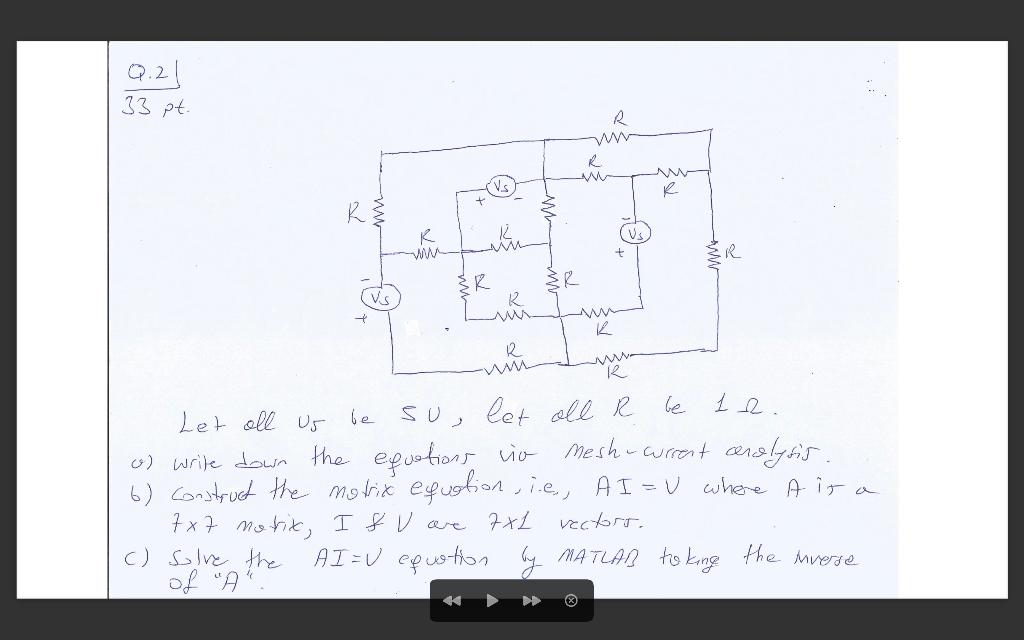 Q.2
33 pt.
R
R
Vs
+ -
R
R
-
Vs
+
R
R
R
R
R
R
-
Vs
+
R
R
R
R
Let all Vs be 5V, let all R be 1 Ω.
a) write down the equations via mesh-current analysis.
b) Construct the matrix equation, i.e., AI = V where A is a
7x7 matrix, I & V are 7x1 vectors.
c) Solve the AI=V equation by MATLAB taking the inverse
of "A".